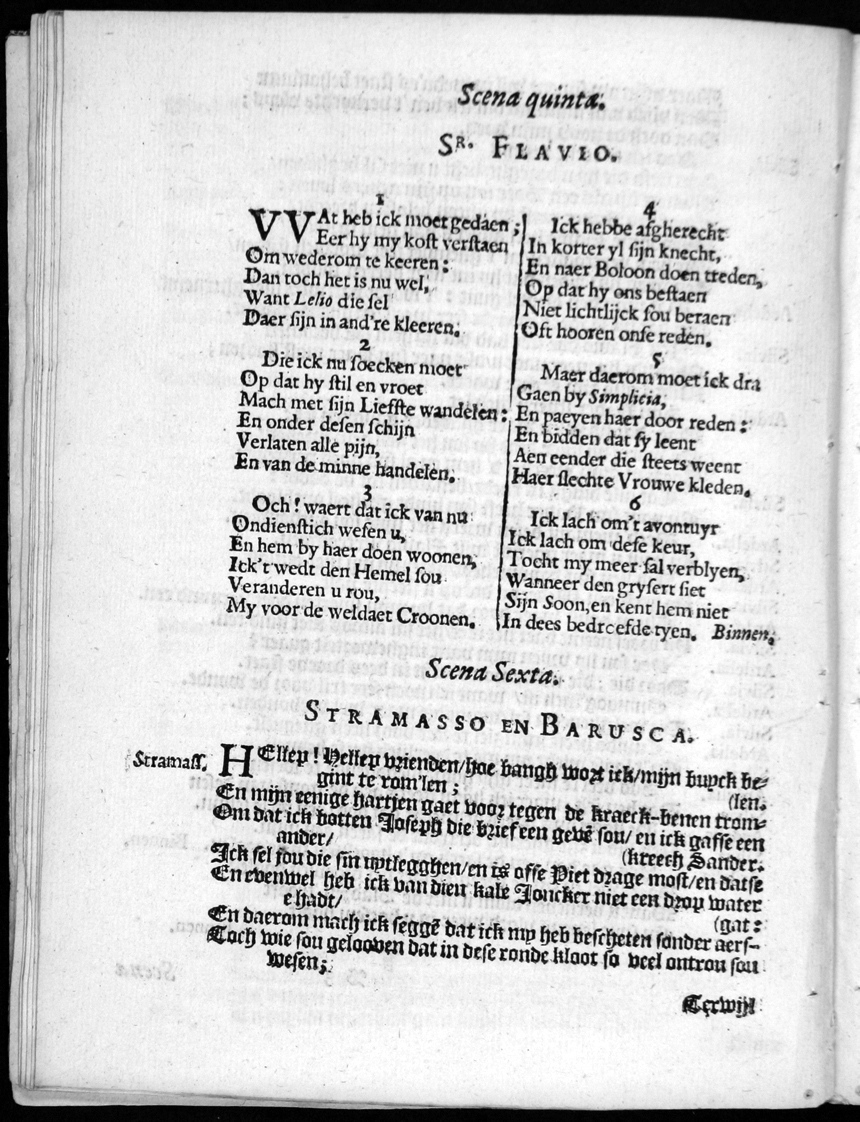 Scena quinta.
SR. FLAVIO.
1
VVAt heb ick moet gedaen ;
Eer hy my kost verstaen
Om wederom te keeren :
Dan toch het is nu wel,
Want Lelio die sel
Daer sijn in and're kleeren.
2
Die ick nu soecken moet
Op dat hy stil en vroet
Mach met sijn Liefste wandelen :
En onder desen schijn
Verlaten alle pijn,
En van de minne handelen.
3
Och ! waert dat ick van nu
Ondienstich wesen u,
En hem by haer doen woonen,
Ick't wedt den Hemel sou
Veranderen u rou,
My voor de weldaet Croonen.
4
Ick hebbe afgherecht
In korter yl sijn knecht,
En naer Boloon doen treden,
Op dat hy ons bestaen
Niet lichtlijck sou beraen
Oft hooren onse reden.
5
Maer daerom moet ick dra
Gaen by Simplicia,
En paeyen haer door reden :
En bidden dat sy leent
Aen eender die steets weent
Haer slechte Vrouwe kleden.
6
Ick lach om't avontuyr
Ick lach om dese keur,
Tocht my meer sal verblyen,
Wanneer den grysert siet
Sijn Soon, en kent hem niet
In dees bedroefde tyen. Binnen.
Scena Sexta.
STRAMASSO EN BARUSCA.
Stramass. HEllep ! Hellep vrienden/hoe bangh wort ick/mijn buyck be-
gint te rom'len ; (len.
En mijn eenige hartjen gaet voor tegen de kraeck-benen trom-
Om dat ick botten Joseph die brief een gevē sou/ en ick gaffe een
ander/ (kreech Sander.
Ick sel jou die sin uytlegghen/en is offe Piet drage most/en datse
En evenwel heb ick van dien kale Joncker niet een drop water
e hadt/ (gat :
En daerom mach ick seggē dat ick my heb bescheten sonder aers-
Toch wie sou gelooven dat in dese ronde kloot so veel ontrou sou
wesen ;
Terwijl